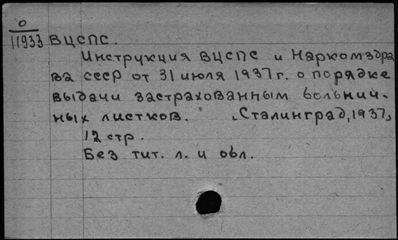 0
11933 ВЦСПС.
Инструкция ВЦСПС и Наркомздра
ва СССР от 31 июля 1937 г. о порядке
выдачи застрахованным больнич-
ных листков. Сталинград, 1937,
12 стр.
Без тит. л. и обл.